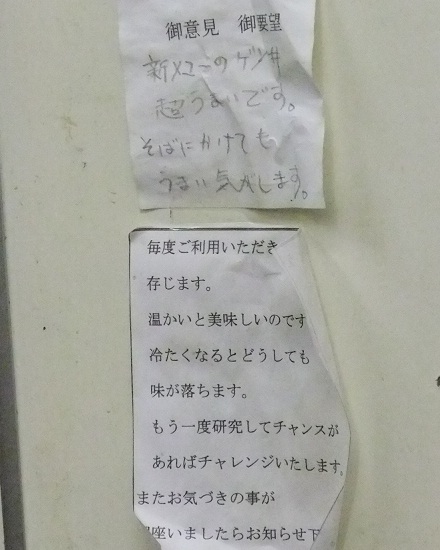 御意見　御要望
新メニューのゲソ丼
超うまいです。
そばにかけても
うまい気がします。
毎度ご利用いただき
存じます。
温かいと美味しいのです
冷たくなるとどうしても
味が落ちます。
もう一度研究してチャンスが
あればチャレンジいたします。
またお気づきの事が
座いましたらお知らせ下